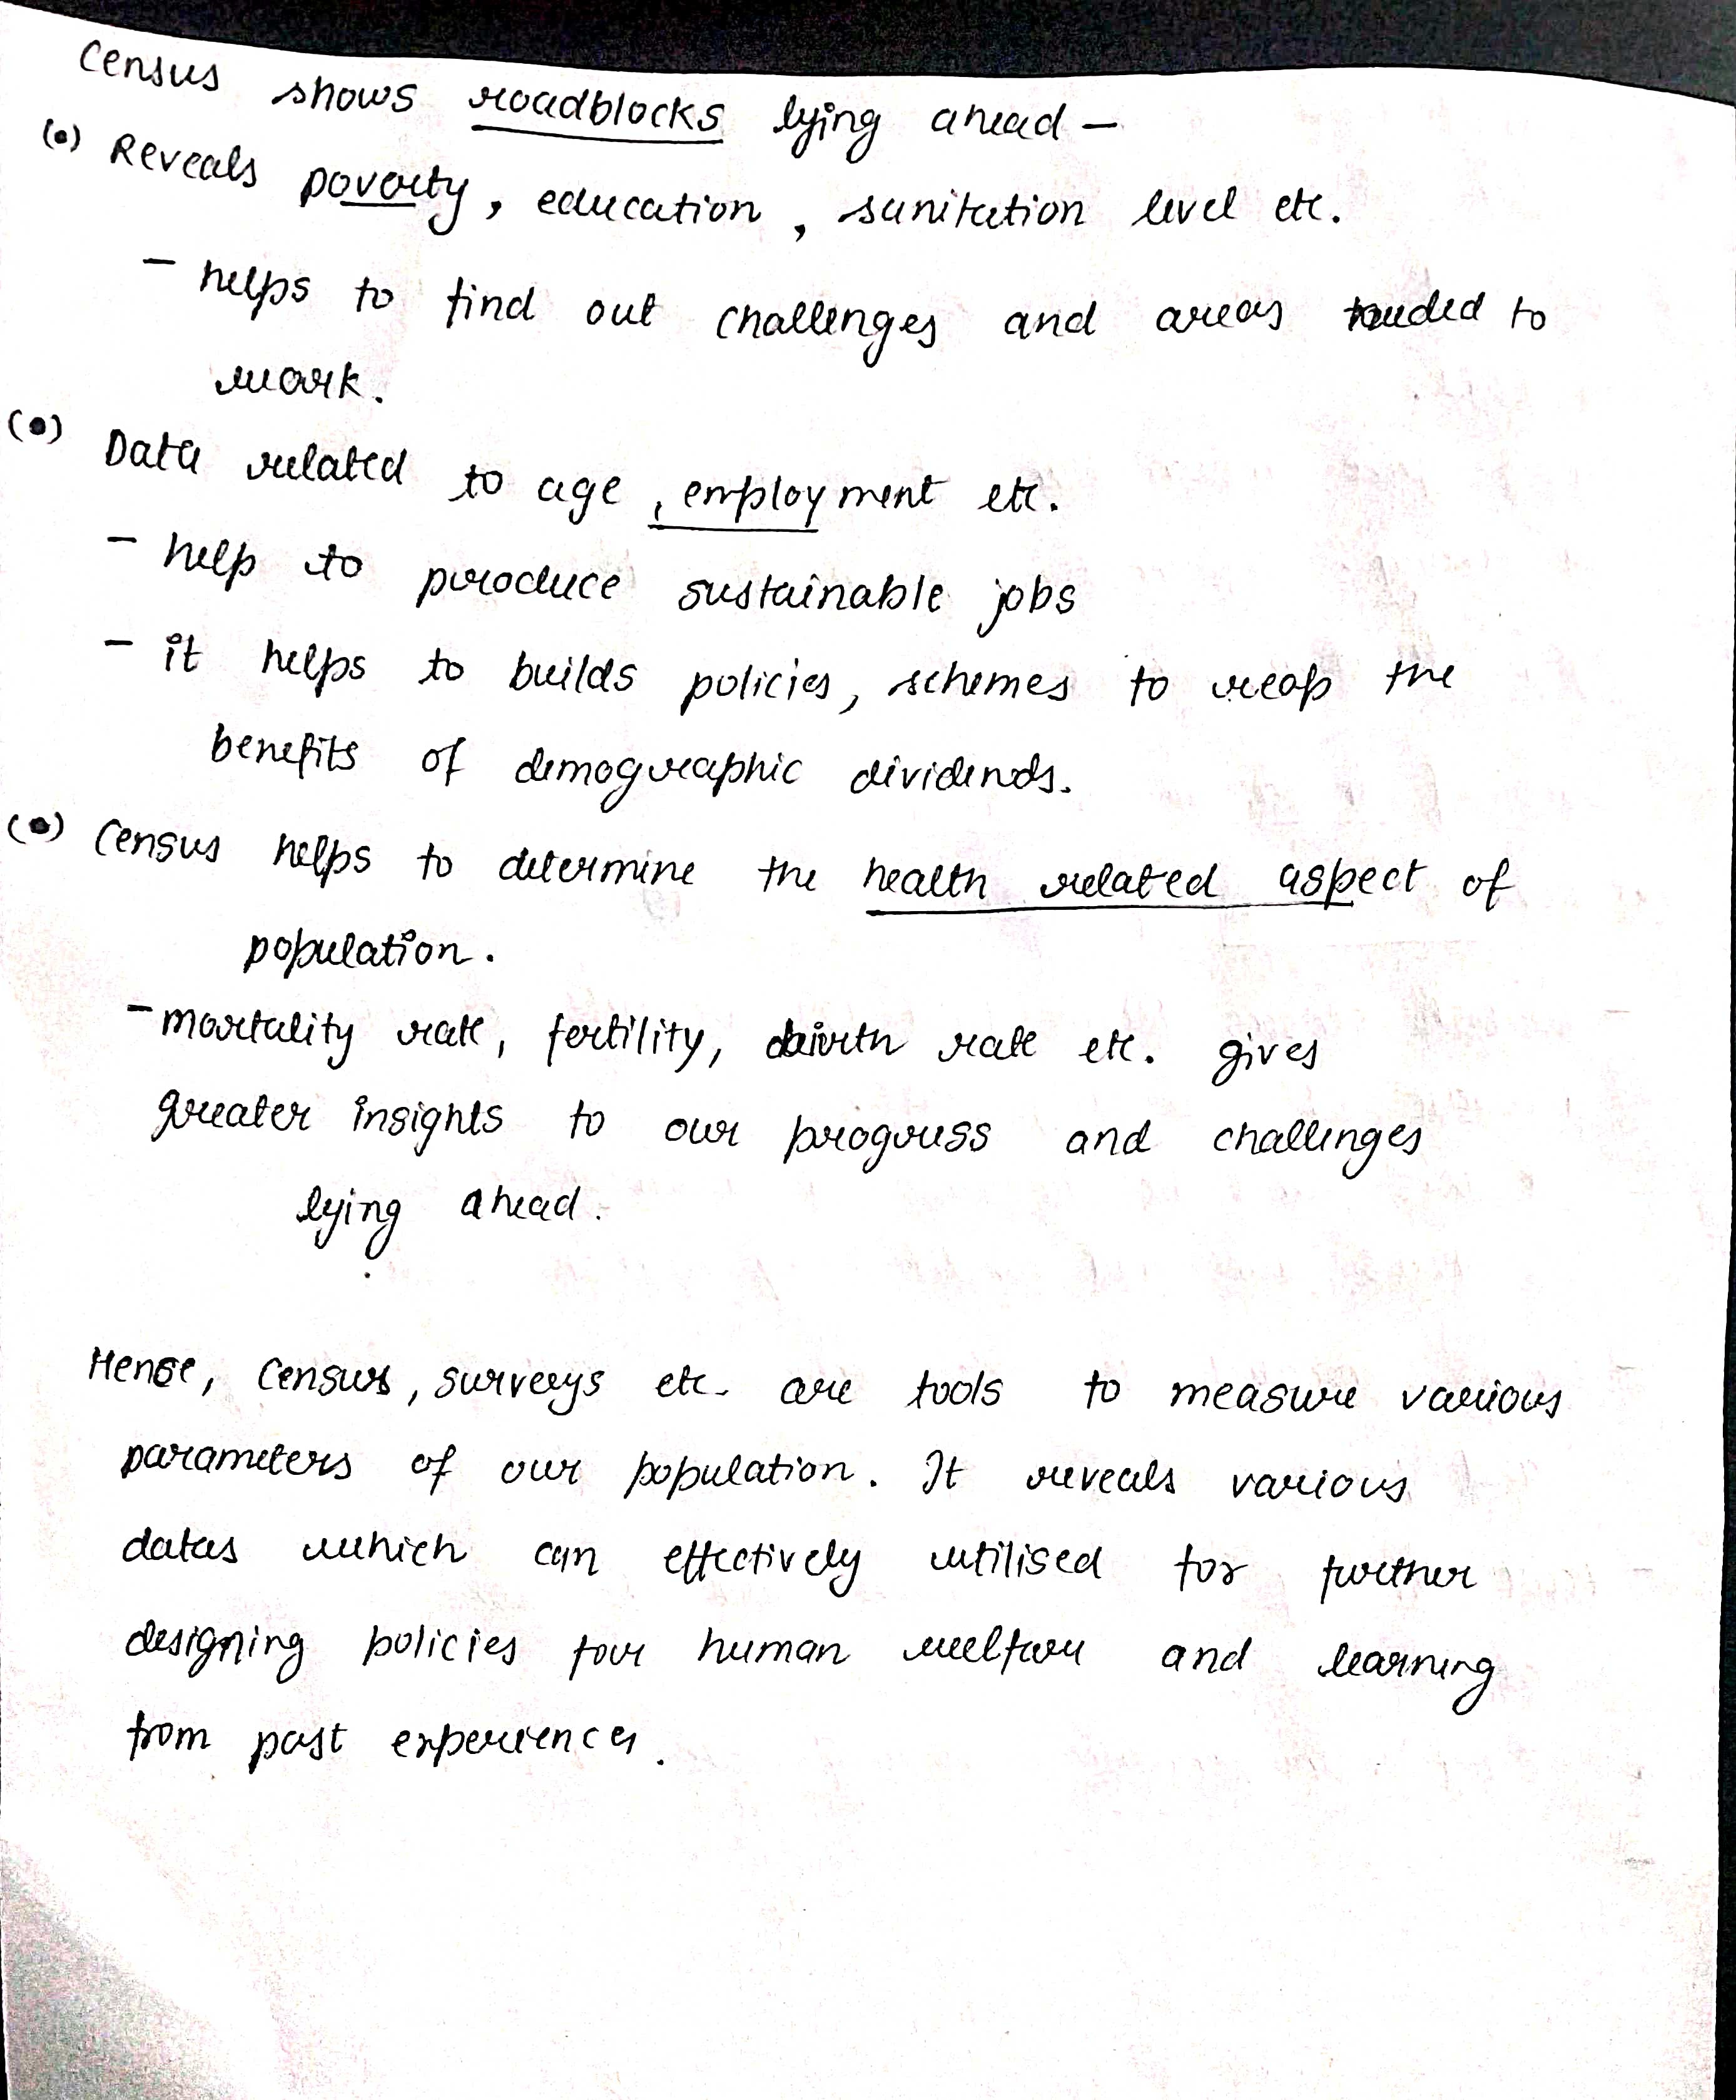 Census shows roadblocks lying ahead —
(•) Reveals poverty, education, sanitation level etc.
– helps to find out challenges and areas to
work.
(•) Data related to age, employment etc.
– help to produce sustainable jobs
– it helps to builds policies, schemes to reap the
benefits of demographic dividends.
(•) Census helps to determine the health related aspect of
population.
– mortality rate, fertility, birth rate etc. gives
greater insights to our progress and challenges
lying ahead.
Hence, Census, surveys etc. are tools to measure various
parameters of our population. It reveals various
datas which can effectively utilised for further
designing policies for human welfare and learning
from past experiences.